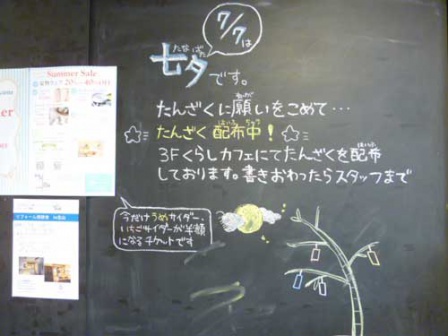 7/7は
たなばた
七夕です。
たんざくに願いをこめて…
ねが
たんざく配布中!
はいふちゅう
3Fくらしカフェにてたんざくを配布
はいふ
しております。書きおわったらスタッフまで
今だけうめサイダー、
いちごサイダーが半額
になるチケットです
Summer Sale